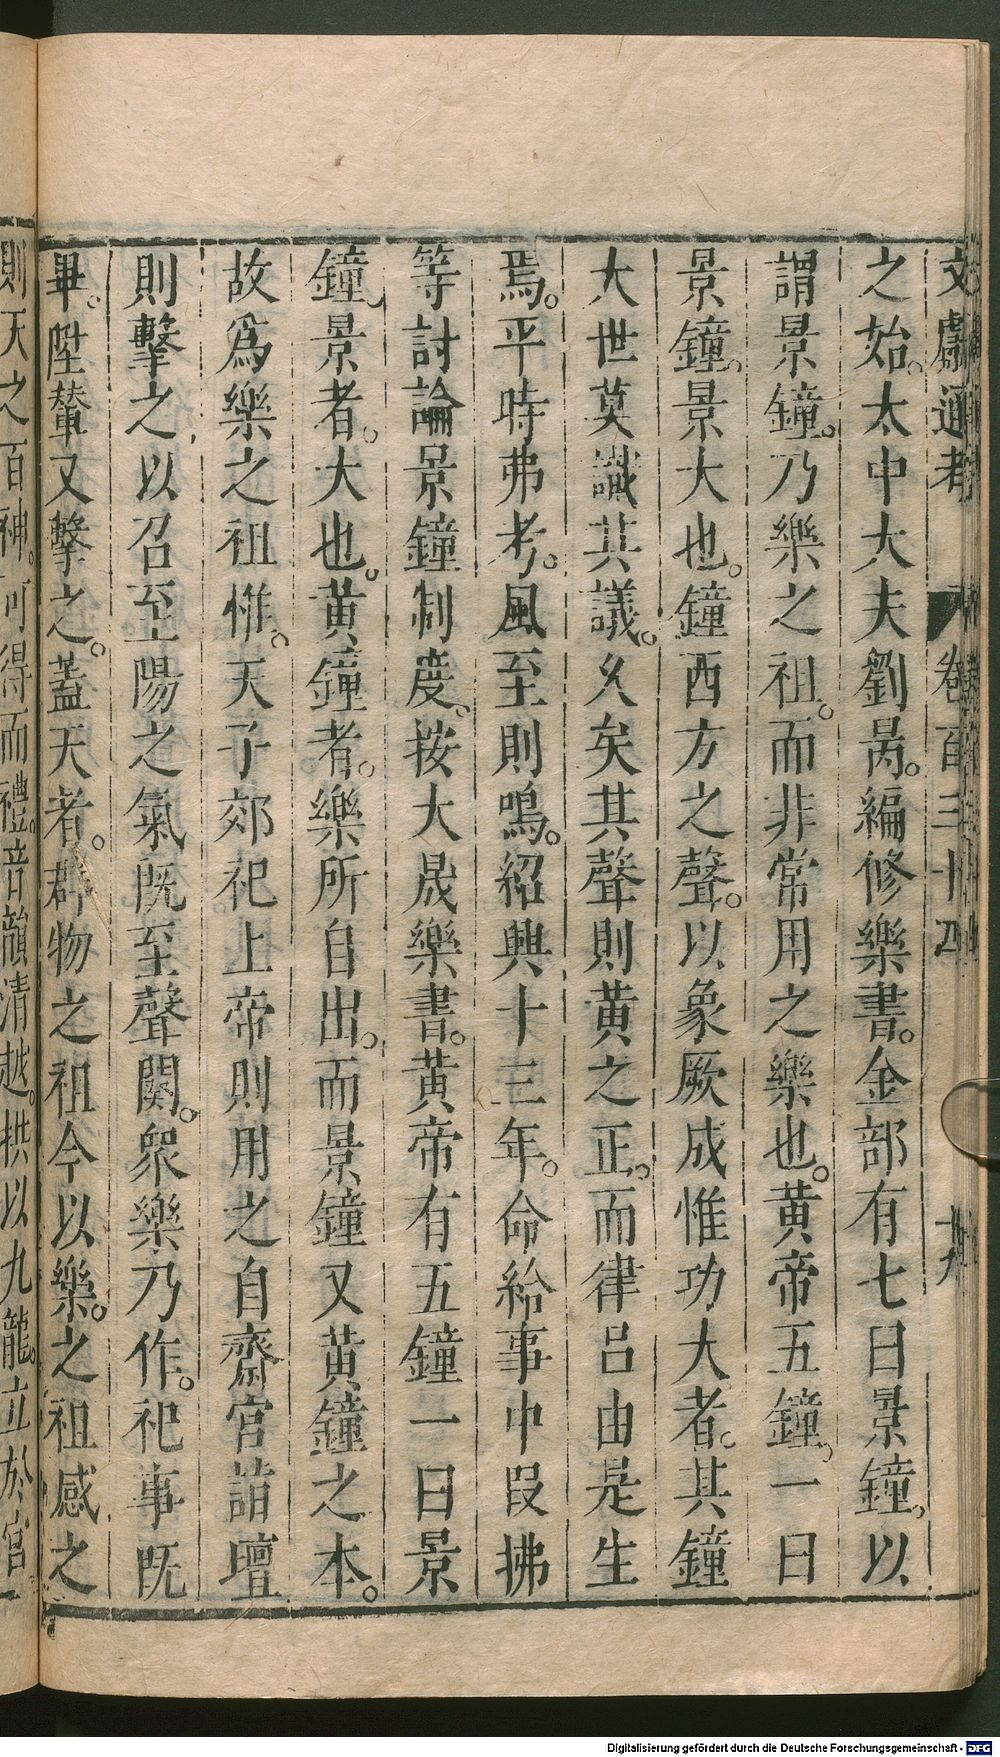 文獻通考 卷百三十四 九
之始。太中大夫劉昺。編修樂書。金部有七曰景鐘。以
謂景鐘。乃樂之祖。而非常用之樂也。黃帝五鐘。一曰
景鐘。景大也。鐘西方之聲。以象厥成惟功大者。其鐘
大世莫識其議。久矣其聲則黃之正。而律呂由是生
焉。平時弗考。風至則鳴。紹興十三年。命給事中段拂
等討論景鐘制度。按大晟樂書。黃帝有五鐘一曰景
鐘。景者。大也。黃鐘者。樂所自出。而景鐘又黃鐘之本。
故爲樂之祖惟。天子郊祀上帝則用之自齋宮詣壇
則擊之以召至陽之氣旣至聲闋。眾樂乃作。祀事旣
畢。陞輦又擊之。蓋天者。群物之祖今以樂。之祖感之
則天之百神。可得而禮。音韻清越。拱以九龍。立於宮
Digitalisierung gefördert durch die Deutsche Forschungsgemeinschaft - DFG